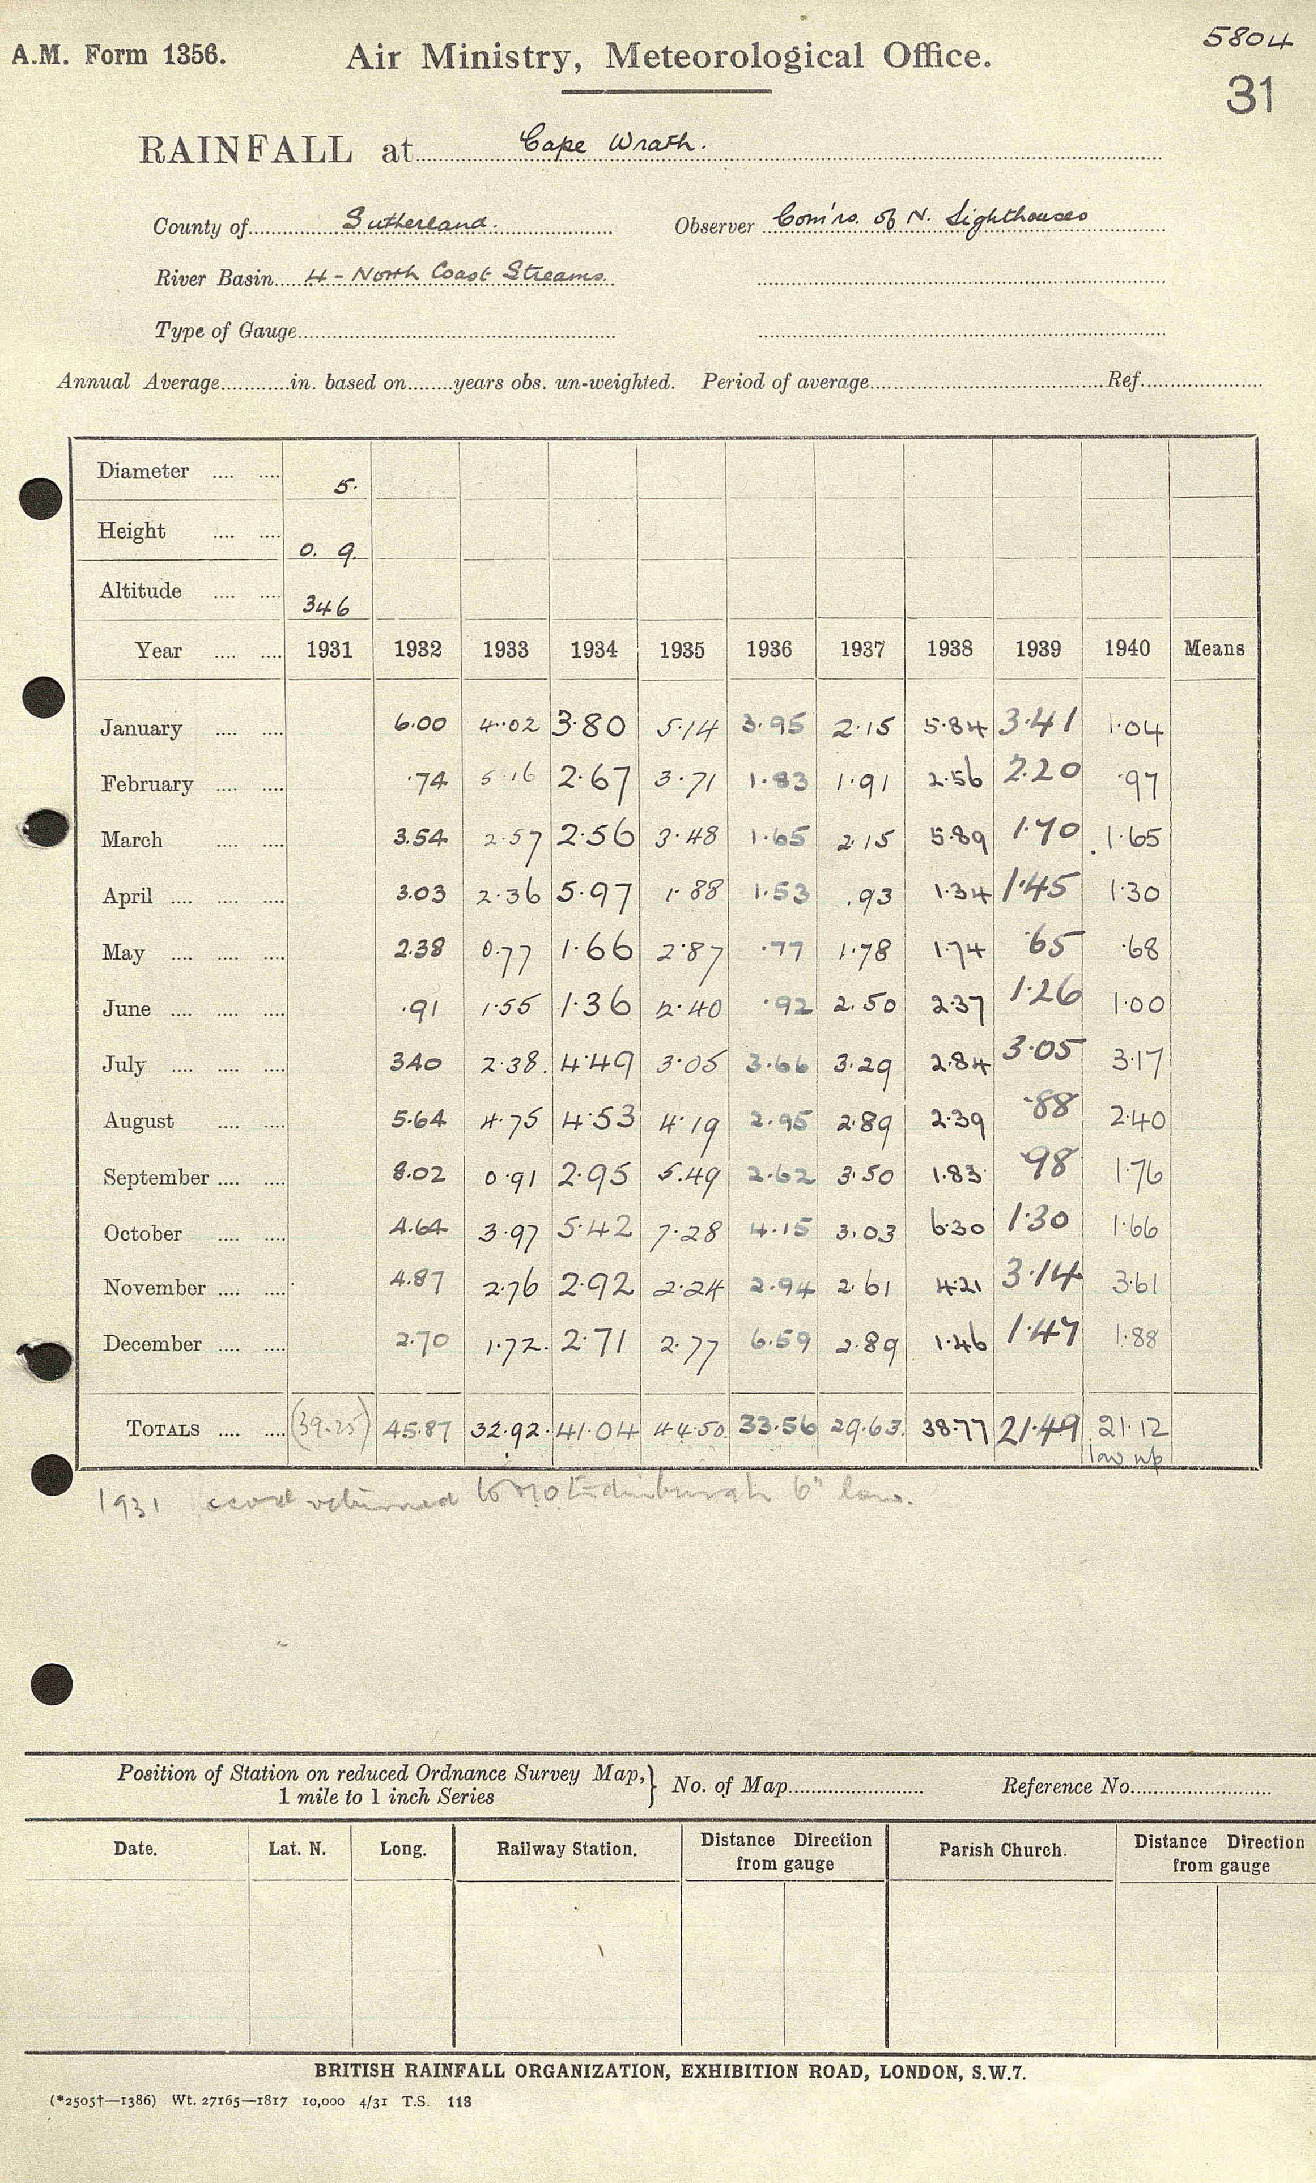 5804
A.M. Form 1356. Air Ministry, Meteorological Office.
31
RAINFALL at Cape Wrath.
County of Sutherland. Observer Com'rs. of N. Lighthouses
River Basin 4 - North Coast Streams.
Type of Gauge
Annual Average in. based on years obs. un-weighted. Period of average Ref.
Diameter 5.
Height 0. 9.
Altitude 346
Year 1931 1932 1933 1934 1935 1936 1937 1938 1939 1940 Means
January 6.00 4.02 3.80 5.14 3.95 2.15 5.84 3.41 1.04
February .74 5.16 2.67 3.71 1.83 1.91 2.56 2.20 .97
March 3.54 2.57 2.56 3.48 1.65 2.15 5.89 1.70 1.65
April 3.03 2.36 5.97 1.88 1.53 .93 1.34 1.45 1.30
May 2.38 0.77 1.66 2.87 .77 1.78 1.74 .65 .68
June .91 1.55 1.36 2.40 .92 2.50 2.37 1.26 1.00
July 3.40 2.38 4.49 3.05 3.66 3.29 2.84 3.05 3.17
August 5.64 4.75 4.53 4.19 2.95 2.89 2.39 .88 2.40
September 8.02 0.91 2.95 5.49 2.62 3.50 1.83 .98 1.76
October 4.64 3.97 5.42 7.28 4.15 3.03 6.30 1.30 1.66
November 4.87 2.76 2.92 2.24 2.94 2.61 4.21 3.14 3.61
December 2.70 1.72 2.71 2.77 6.59 2.89 1.46 1.47 1.88
TOTALS (39.25) 45.87 32.92 41.04 44.50 33.56 29.63 38.77 21.49 21.12
1931 returned to MO Edinburgh 6" low.
Position of Station on reduced Ordnance Survey Map, } No. of Map Reference No.
1 mile to 1 inch Series
Date. Lat. N. Long. Railway Station. Distance Direction from gauge Parish Church. Distance Direction from gauge
BRITISH RAINFALL ORGANIZATION, EXHIBITION ROAD, LONDON, S.W.7.
(*2505†—1386) Wt. 27165—1817 10,000 4/31 T.S. 118